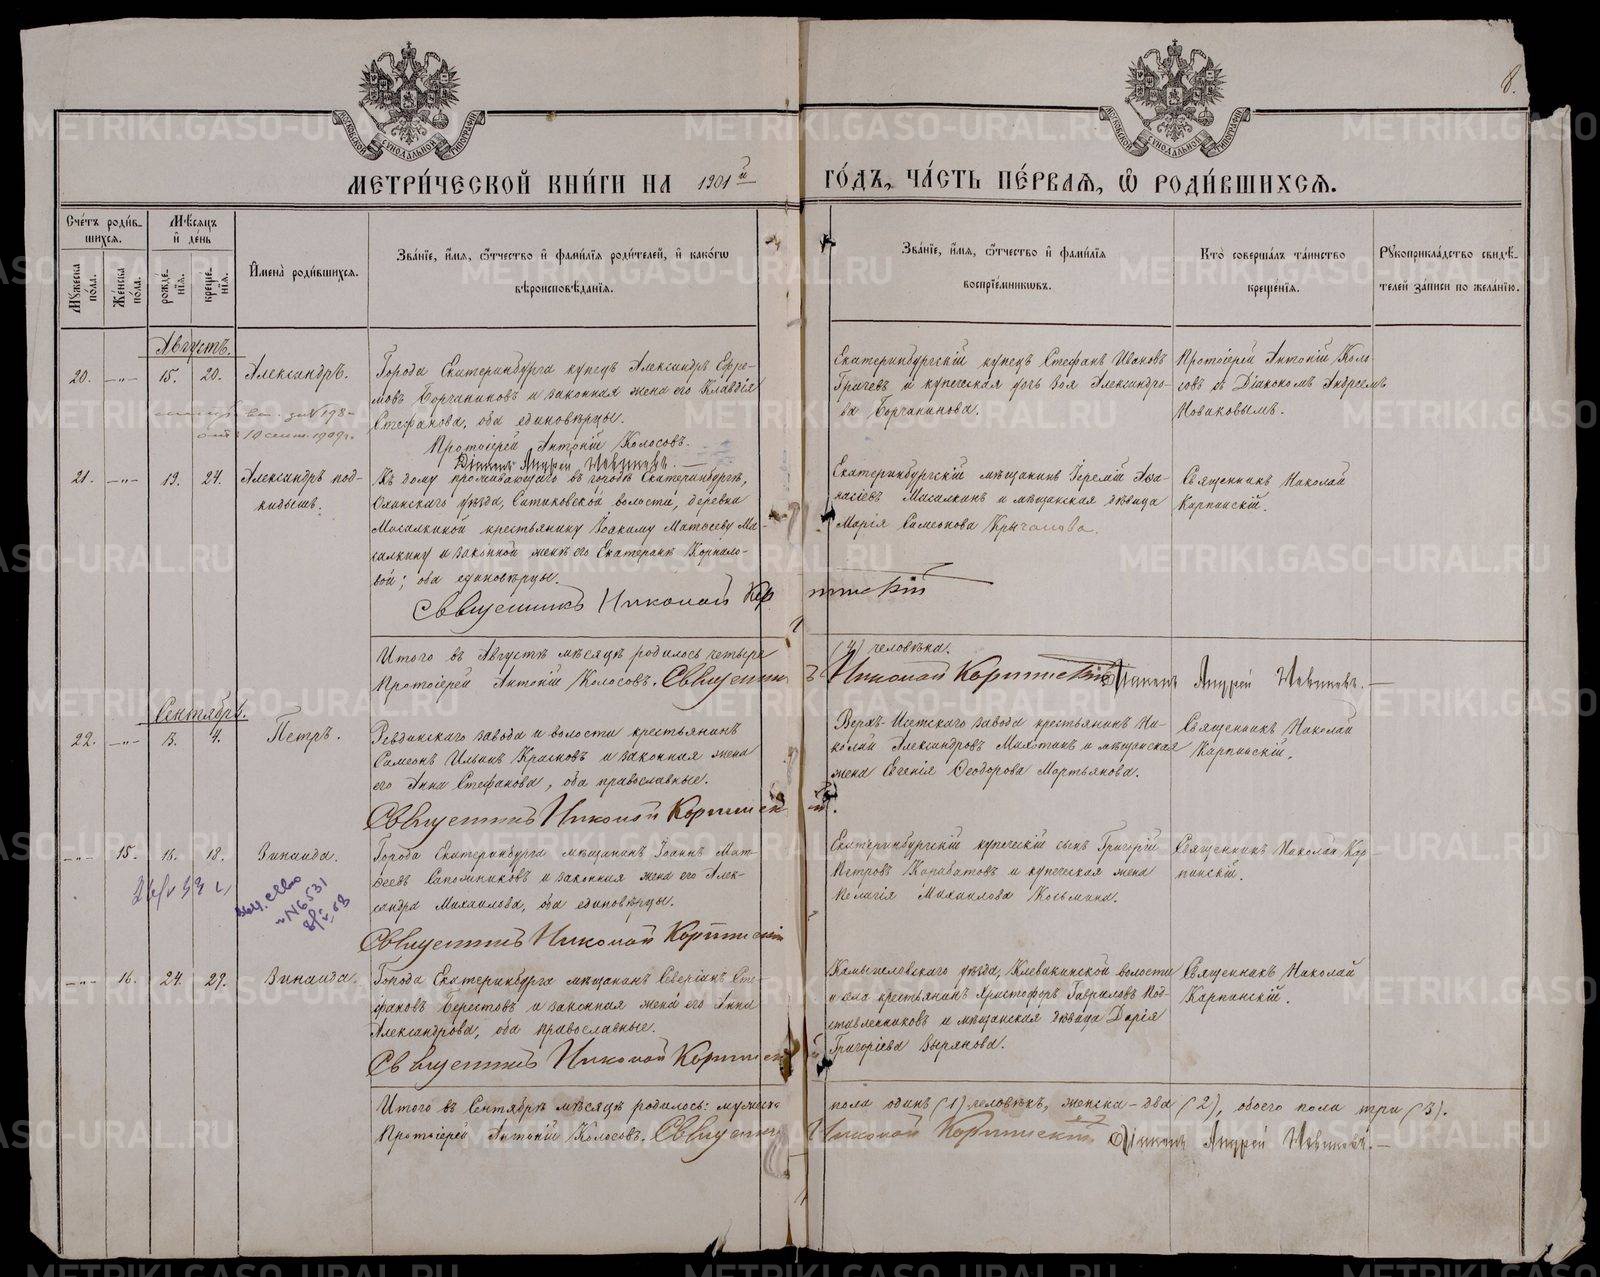 8.
МОСКОВСКОЙ СѴНОДАЛЬНОЙ ТИПОГРАФІИ
МОСКОВСКОЙ СѴНОДАЛЬНОЙ ТИПОГРАФІИ
МЕТРИ́ЧЕСКОЙ КНИ́ГИ НА 1901й
ГО́ДЪ, ЧА́СТЬ ПЕ́РВАЯ, Ѽ РОДИ́ВШИХСЯ.
Сче́тъ роди́в-
шихся.
Мꙋжеска по́ла.
Же́нска по́ла.
Мѣ́сяцъ
и҆ де́нь
рожде́нїя.
креще́нїя.
И҆мена̀ роди́вшихся.
Зва́нїе, и҆́мя, ѻ҆́тчество и҆ фами́лїя роди́телей, и҆ како́гѡ
вѣроисповѣ́данїя.
Зва́нїе, и҆́мя, ѻ҆́тчество и҆ фами́лїя
воспрїе́мникѡвъ.
Кто̀ соверша́лъ та́инство
креще́нїя.
Рꙋкоприкла́дство свидѣ́-
телей за́писи по жела́нїю.
Августъ.
20. -"- 15. 20. Александръ.
Города Екатеринбурга купецъ Александръ Ефре-
мовъ Борчаниновъ и законная жена его Клавдія
Стефанова, оба единовѣрцы.
Протоіерей Антоній Колосовъ.
Діаконъ Андрей Новаковъ.
Екатеринбургскій купецъ Стефанъ Ивановъ
Грачевъ и купеческая дочь Зоя Александро-
ва Борчанинова.
Протоіерей Антоній Коло-
совъ съ Діакономъ Андреемъ
Новаковымъ.
10 сент. 1909г.
21. -"- 19. 24. Александръ под-
кидышъ.
Къ дому проживающаго въ городѣ Екатеринбургѣ,
Оханскаго уѣзда, Ситниковской волости, деревни
Мосалкиной крестьянину Іоакиму Матѳееву Ма-
салкину и законной женѣ его Екатеринѣ Корнило-
вой; оба единовѣрцы.
Священникъ Николай Карпинскій
Екатеринбургскій мѣщанинъ Іеремій Аѳа-
насіевъ Масалкинъ и мѣщанская дѣвица
Марія Симеонова Крычалова.
Священникъ Николай
Карпинскій.
Итого въ Августѣ мѣсяцѣ родилось четыре (4) человѣка.
Протоіерей Антоній Колосовъ. Священникъ Николай Карпинскій Діаконъ Андрей Новаковъ.
Сентябрь.
22. -"- 3. 4. Петръ.
Ревдинскаго завода и волости крестьянинъ
Симеонъ Ильинъ Красновъ и законная жена
его Анна Стефанова, оба православные.
Священникъ Николай Карпинскій.
Верхъ-Исетскаго завода крестьянинъ Ни-
колай Александровъ Милютинъ и мѣщанская
жена Евгенія Ѳеодорова Мартьянова.
Священникъ Николай
Карпинскій.
-"- 15. 15. 18. Зинаида.
Города Екатеринбурга мѣщанинъ Іоаннъ Мат-
ѳеевъ Сапожниковъ и законная жена его Алек-
сандра Михаилова, оба единовѣрцы.
Священникъ Николай Карпинскій
Екатеринбургскій купеческій сынъ Григорій
Петровъ Карабатовъ и купеческая жена
Пелагія Михаилова Козьмина.
Священникъ Николай Кар-
пинскій.
№6531
-"- 16. 24. 29. Зинаида.
Города Екатеринбурга мѣщанинъ Северіанъ Сте-
фановъ Берестовъ и законная жена его Анна
Александрова, оба православные.
Священникъ Николай Карпинскій
Камышловскаго уѣзда, Клевакинской волости
и села крестьянинъ Христофоръ Гавриловъ Под-
ставленниковъ и мѣщанская дѣвица Дарія
Григоріева Зырянова.
Священникъ Николай
Карпинскій.
Итого въ Сентябрѣ мѣсяцѣ родилось: мужска пола одинъ (1) человѣкъ, женска - два (2), обоего пола три (3).
Протоіерей Антоній Колосовъ. Священникъ Николай Карпинскій Діаконъ Андрей Новаковъ.
METRIKI.GASO-URAL.RU